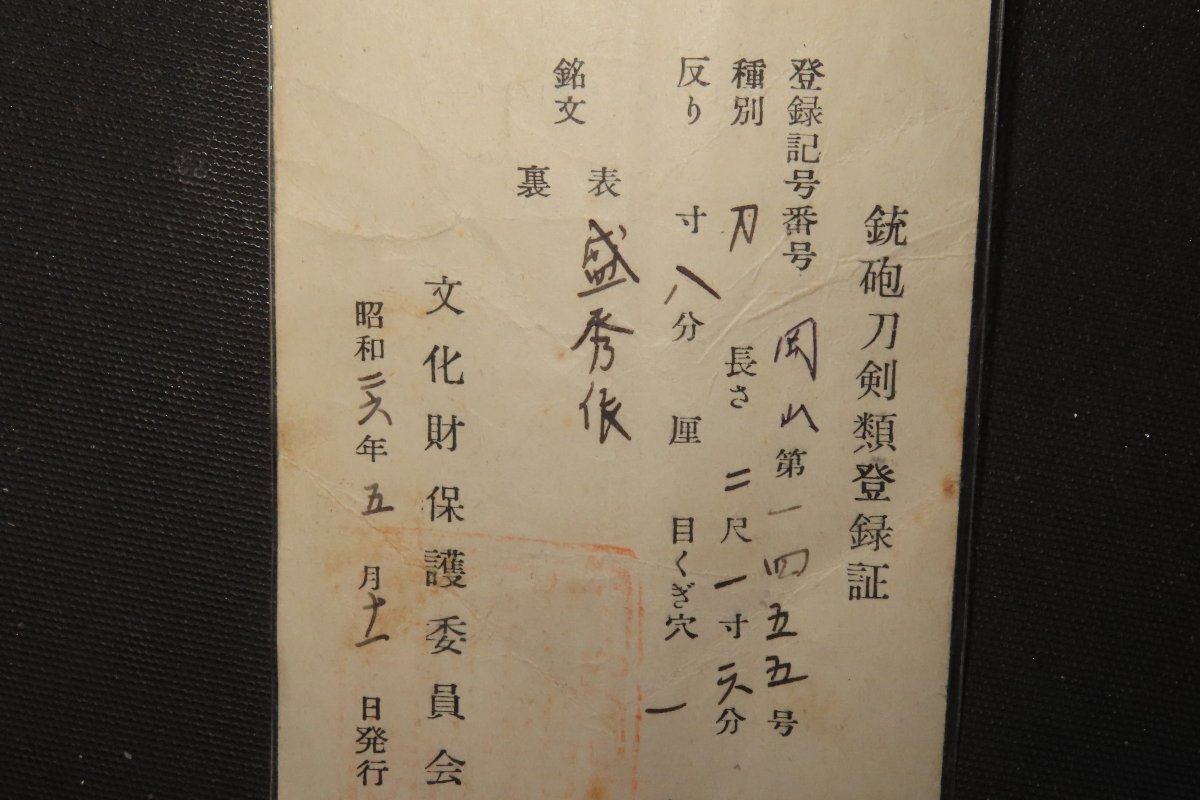 銃砲刀剣類登録証
登録記号番号 岡山第一四五五号
種別 刀 長さ 二尺一寸六分
反り 寸八分 厘 目くぎ穴 一
銘文 表 盛秀作
裏
文化財保護委員会
昭和二六年五月十一日発行